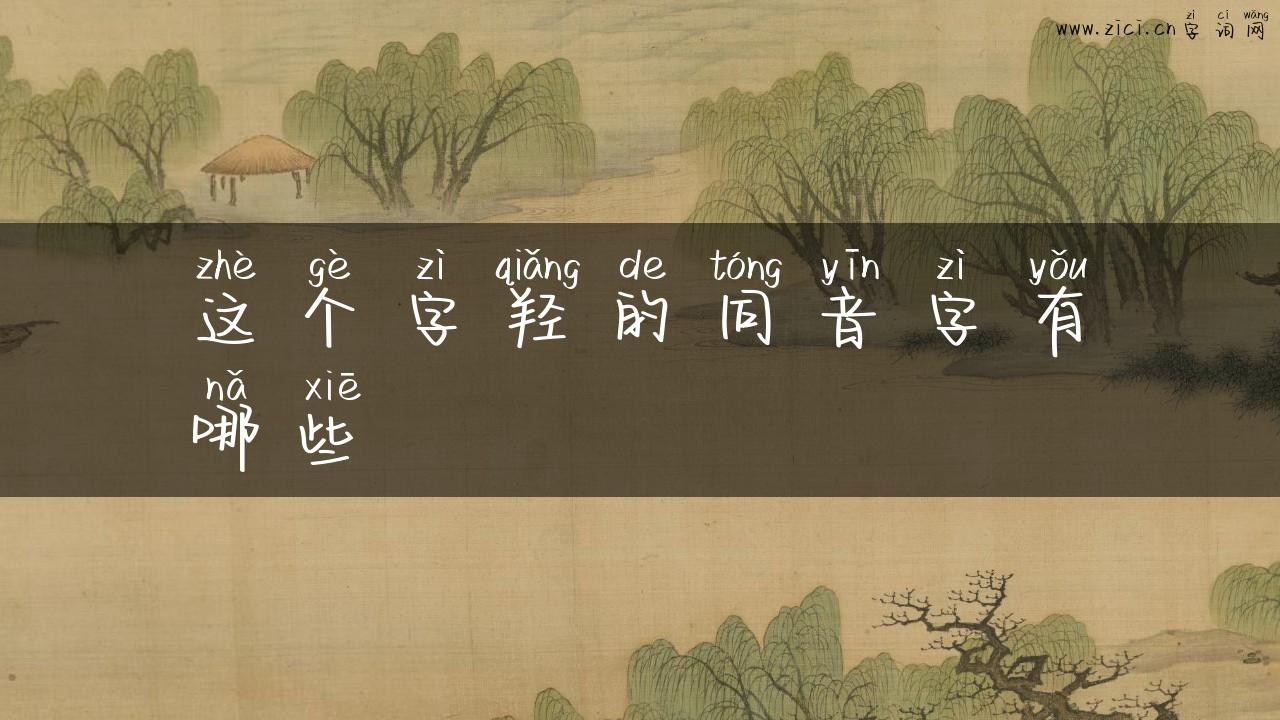 zì cí wǎng
www.zici.cn 字 词 网
zhè gè zì qiǎng de tóng yīn zì yǒu
这 个 字 羟 的 同 音 字 有
nǎ xiē
哪 些